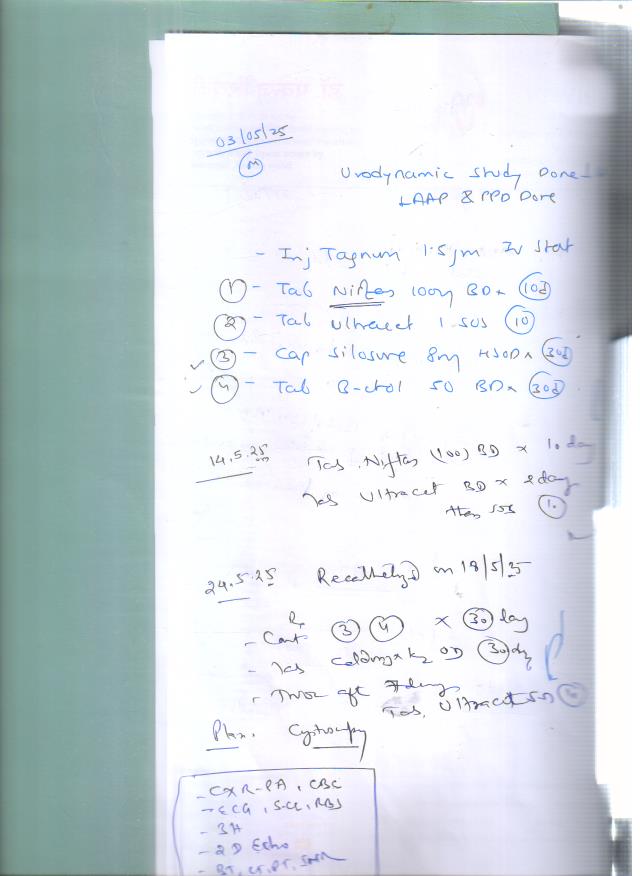 03/05/25
M
Urodynamic study Done
LAAP & PPD Done
- Inj Tagnum 1.5gm IV stat
① - Tab Niftas 100mg BD x 10d
② - Tab Ultracet 1 SOS 10
✓ ③ - Cap silosure 8mg HSOD x 30d
✓ ④ - Tab B-chol 50 BD x 30d
14.5.25 Tab. Niftas (100) BD x 10 day
Tab Ultracet BD x day
then SOS
24.5.25 on 18/5/25
Rx
- Cont ③ ④ x 30 day
- Tab OD 30 day
Tab. Ultracet SOS
Plan. Cystoscopy
- CXR-PA, CBC
- ECG, RBS
- 2D Echo
- BT, CT, PT,